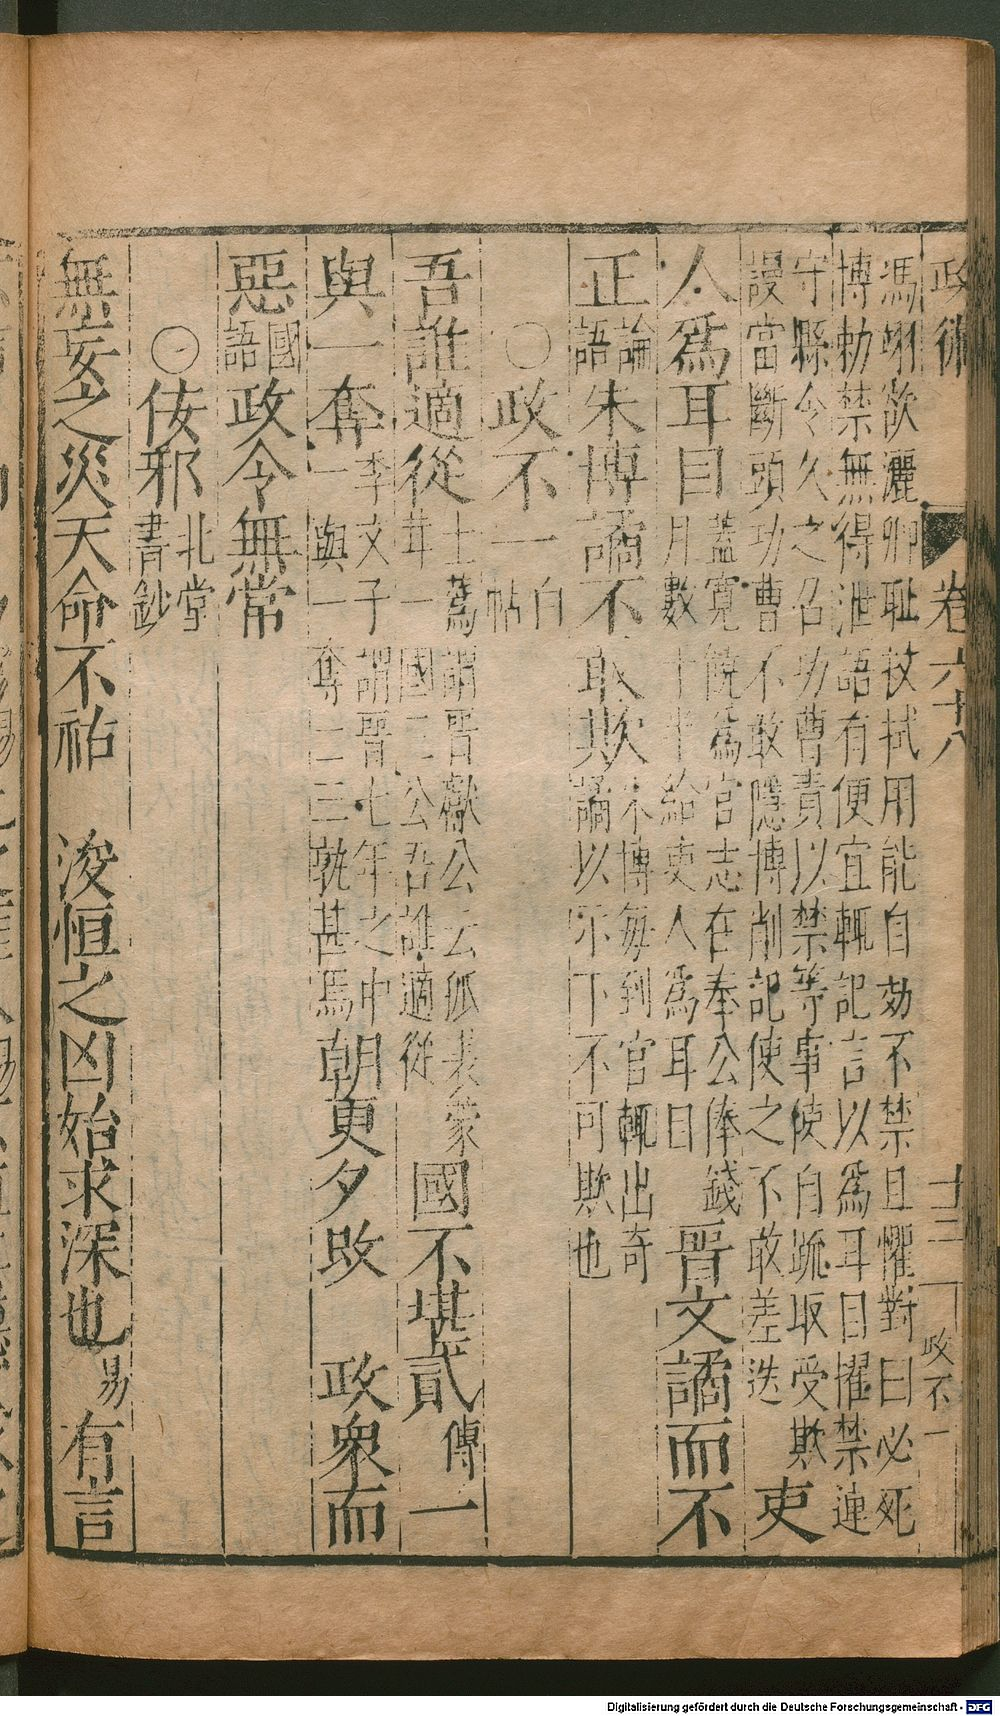 政術 卷六十八 十二 政不一
馮翊欲灑卿耻抆拭用能自効不禁且懼對曰必死
博勅禁無得泄語有便宜輒記言以爲耳目擢禁連
守縣令久之召功曹責以禁等事使自疏取受欺
謾當斷頭功曹不敢隱博削記使之不敢差迭 吏
人爲耳目 蓋寬饒爲官志在奉公俸錢
月數千半給吏人爲耳目 晋文譎而不
正 論語 朱博譎不取欺 朱博每到官輒出奇
譎以示下不可欺也
〇政不一 白帖
吾誰適從 士蔿謂晋獻公云狐裘蒙
茸一國三公吾誰適從 國不堪貳 傳 一
與一奪 李文子謂晋七年之中
一與一奪二三孰甚焉 朝更夕改 政衆而
惡 國語 政令無常
〇佞邪 北堂書鈔
無妄之災天命不祐 浚恒之凶始求深也 易 有言
Digitalisierung gefördert durch die Deutsche Forschungsgemeinschaft - DFG